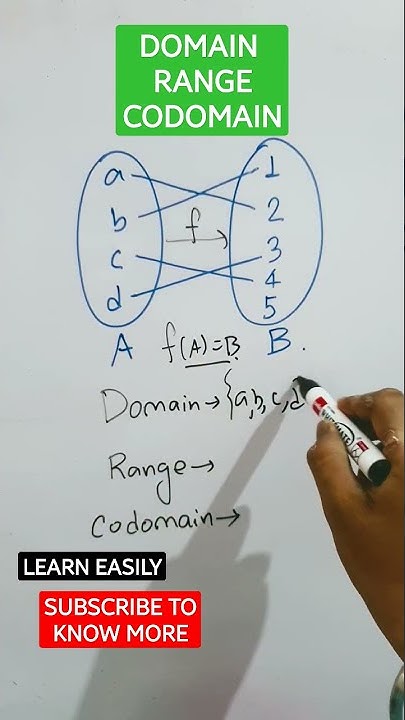 DOMAIN
RANGE
CODOMAIN
a 1
b f 2
c 3
d 4
5
A f(A)=B B.
Domain→{a,b,c,d
Range→
Codomain→
LEARN EASILY
SUBSCRIBE TO
KNOW MORE